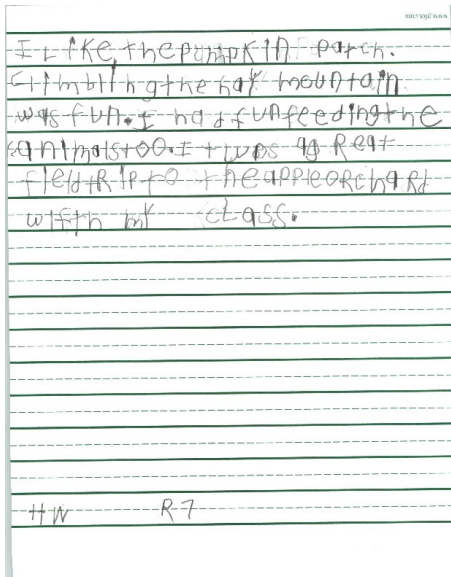 I like the pumpkin patch.
Climbling the hay mountain
was fun. I had fun feeding the
animals too. It was a gReat
field tRip to the apple orchard
with my class.
HW R-7